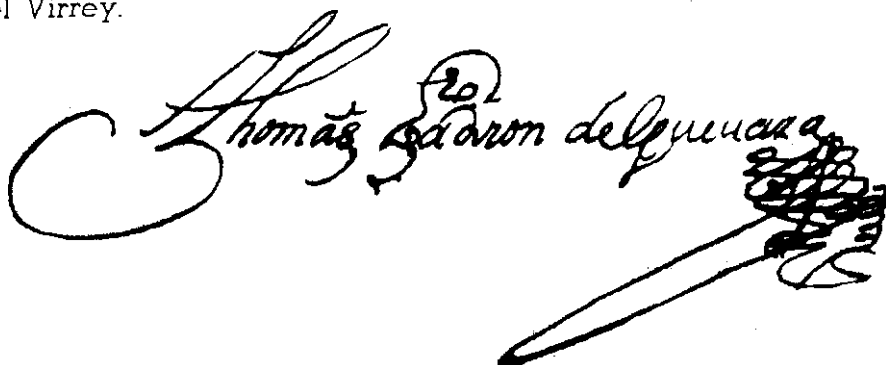 el Virrey.
Thomás Ladron de Gueuara